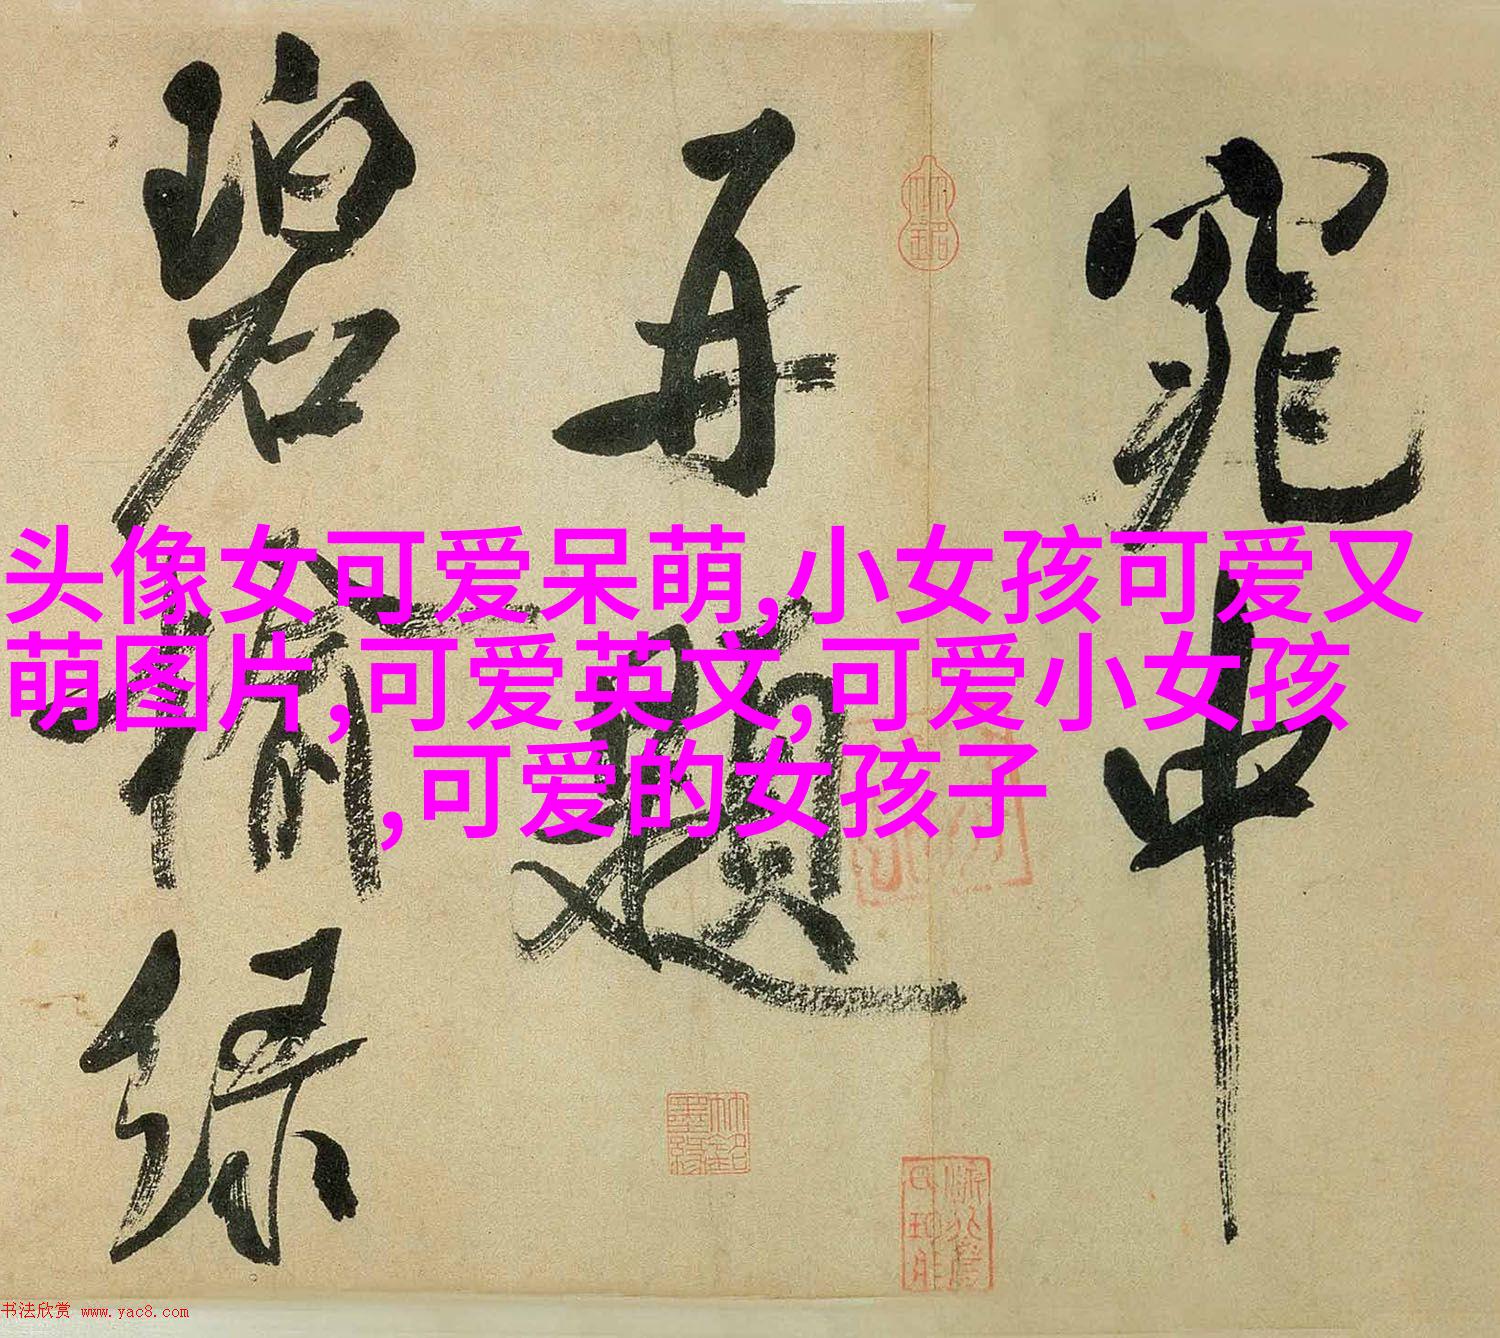 霏中
再题
碧榆绿
头像女可爱呆萌,小女孩可爱又
萌图片,可爱英文,可爱小女孩
,可爱的女孩子
书法欣赏 www.yac8.com